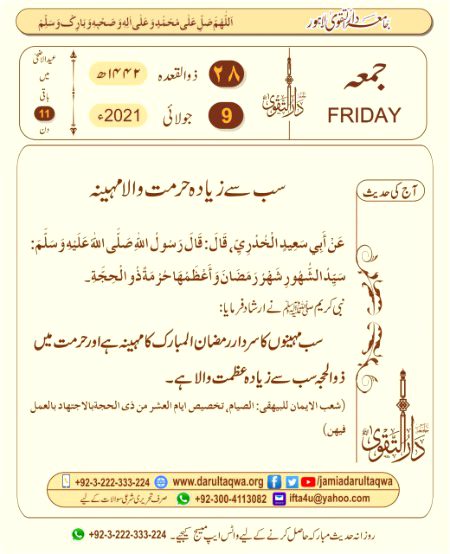 جامعہ دارالتقویٰ لاہور
اَللّٰھُمَّ صَلِّ عَلٰی مُحَمَّدٍ وَّعَلٰی اٰلِہٖ وَصَحْبِہٖ وَبَارِکْ وَسَلِّمْ
جمعہ
FRIDAY
دارالتقویٰ
۲۸ ذوالقعدہ ۱۴۴۲ھ
9 جولائی 2021ء
عیدالاضحیٰ
میں
باقی
11
دن
آج کی حدیث
سب سے زیادہ حرمت والا مہینہ
عَنْ أَبِي سَعِيدٍ الْخُدْرِيِّ، قَالَ: قَالَ رَسُولُ اللهِ صَلَّى اللهُ عَلَيْهِ وَسَلَّمَ:
سَيِّدُ الشُّهُورِ شَهْرُ رَمَضَانَ وَأَعْظَمُهَا حُرْمَةً ذُو الْحِجَّةِ۔
نبی کریم ﷺ نے ارشاد فرمایا:
سب مہینوں کا سردار رمضان المبارک کا مہینہ ہے اور حرمت میں
ذوالحجہ سب سے زیادہ عظمت والا ہے۔
(شعب الایمان للبیہقی: الصیام، تخصیص ایام العشر من ذی الحجة بالاجتهاد بالعمل
فیهن)
دارالتقویٰ
+92-3-222-333-224 www.darultaqwa.org /jamiadarultaqwa
صرف تحریری شرعی سوالات کے لیے +92-300-4113082 ifta4u@yahoo.com
روزانہ حدیث مبارکہ حاصل کرنے کے لیے واٹس ایپ میسج کیجیے۔ +92-3-222-333-224